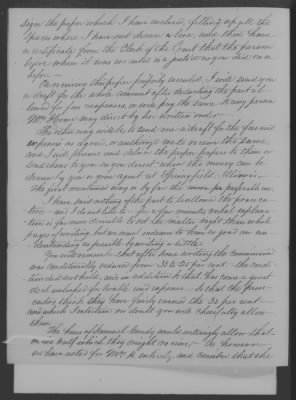 sign the paper which I have enclosed, filling up all the
spaces where I have not drawn a line, and then have
a certificate from the Clerk of the Court that the person
before whom it was executed is a justice as you did once
before —
On receiving this paper properly executed, I will send you
a draft for the whole amount after deducting the part al-
lowed for fees & expenses, or will pay the same to any person
Mrs may direct by her written order —
The other way will be to send me a draft for the fees and
expenses as agreed, & authorize me to receive the same,
and I will procure and obtain the proper papers to them &
send them to you as you direct when the money can be
drawn by you or your agent at Springfield, Illinois —
The first mentioned way is by far the more preferable one.
I have said nothing of the part to be allowed the prosecu-
tors — and I do not like to — for a few minutes verbal explana-
tion is far more desirable to set the matter right than whole
pages of writing, but we must endeavor to have as good an un-
derstanding as possible by writing a little —
You will remember that after some writing the commission
was conditionally reduced from to 25 per cent — the condi-
tion did not hold, and in addition to that has come a great
deal unlooked for trouble and expense — so that the prose-
cutors think they have fairly earned the 30 per cent —
and which I intention no doubt you will cheerfully allow
them —
The heirs of Samuel would willingly allow that
one half which they might receive — As however
we have acted for Mrs entirely, and consider that she